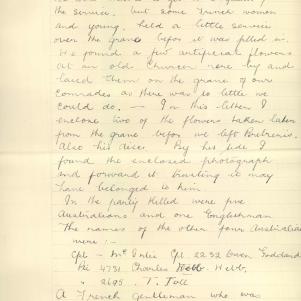 the service, but some French women
and young, held a little service
over the grave befor it was filled in.
We found a few artificial flowers
at an old church near by and
laced them on the grave of our
Comrades as there was so little we
could do. — In this letter I
enclose two of the flowers taken later
from the grave befor we left
Also his discs. By his side I
found the enclosed photograph
and forward it trusting it may
have belonged to him.
In the party killed were five
Australians and one Englishman
The names of the other four Australians
were :-
Cpl - Mc Cpl 2252 Owen Goddard
Pte 4731 Charles Webb. Webb,
" 2695. T. Toll
A French gentleman who was